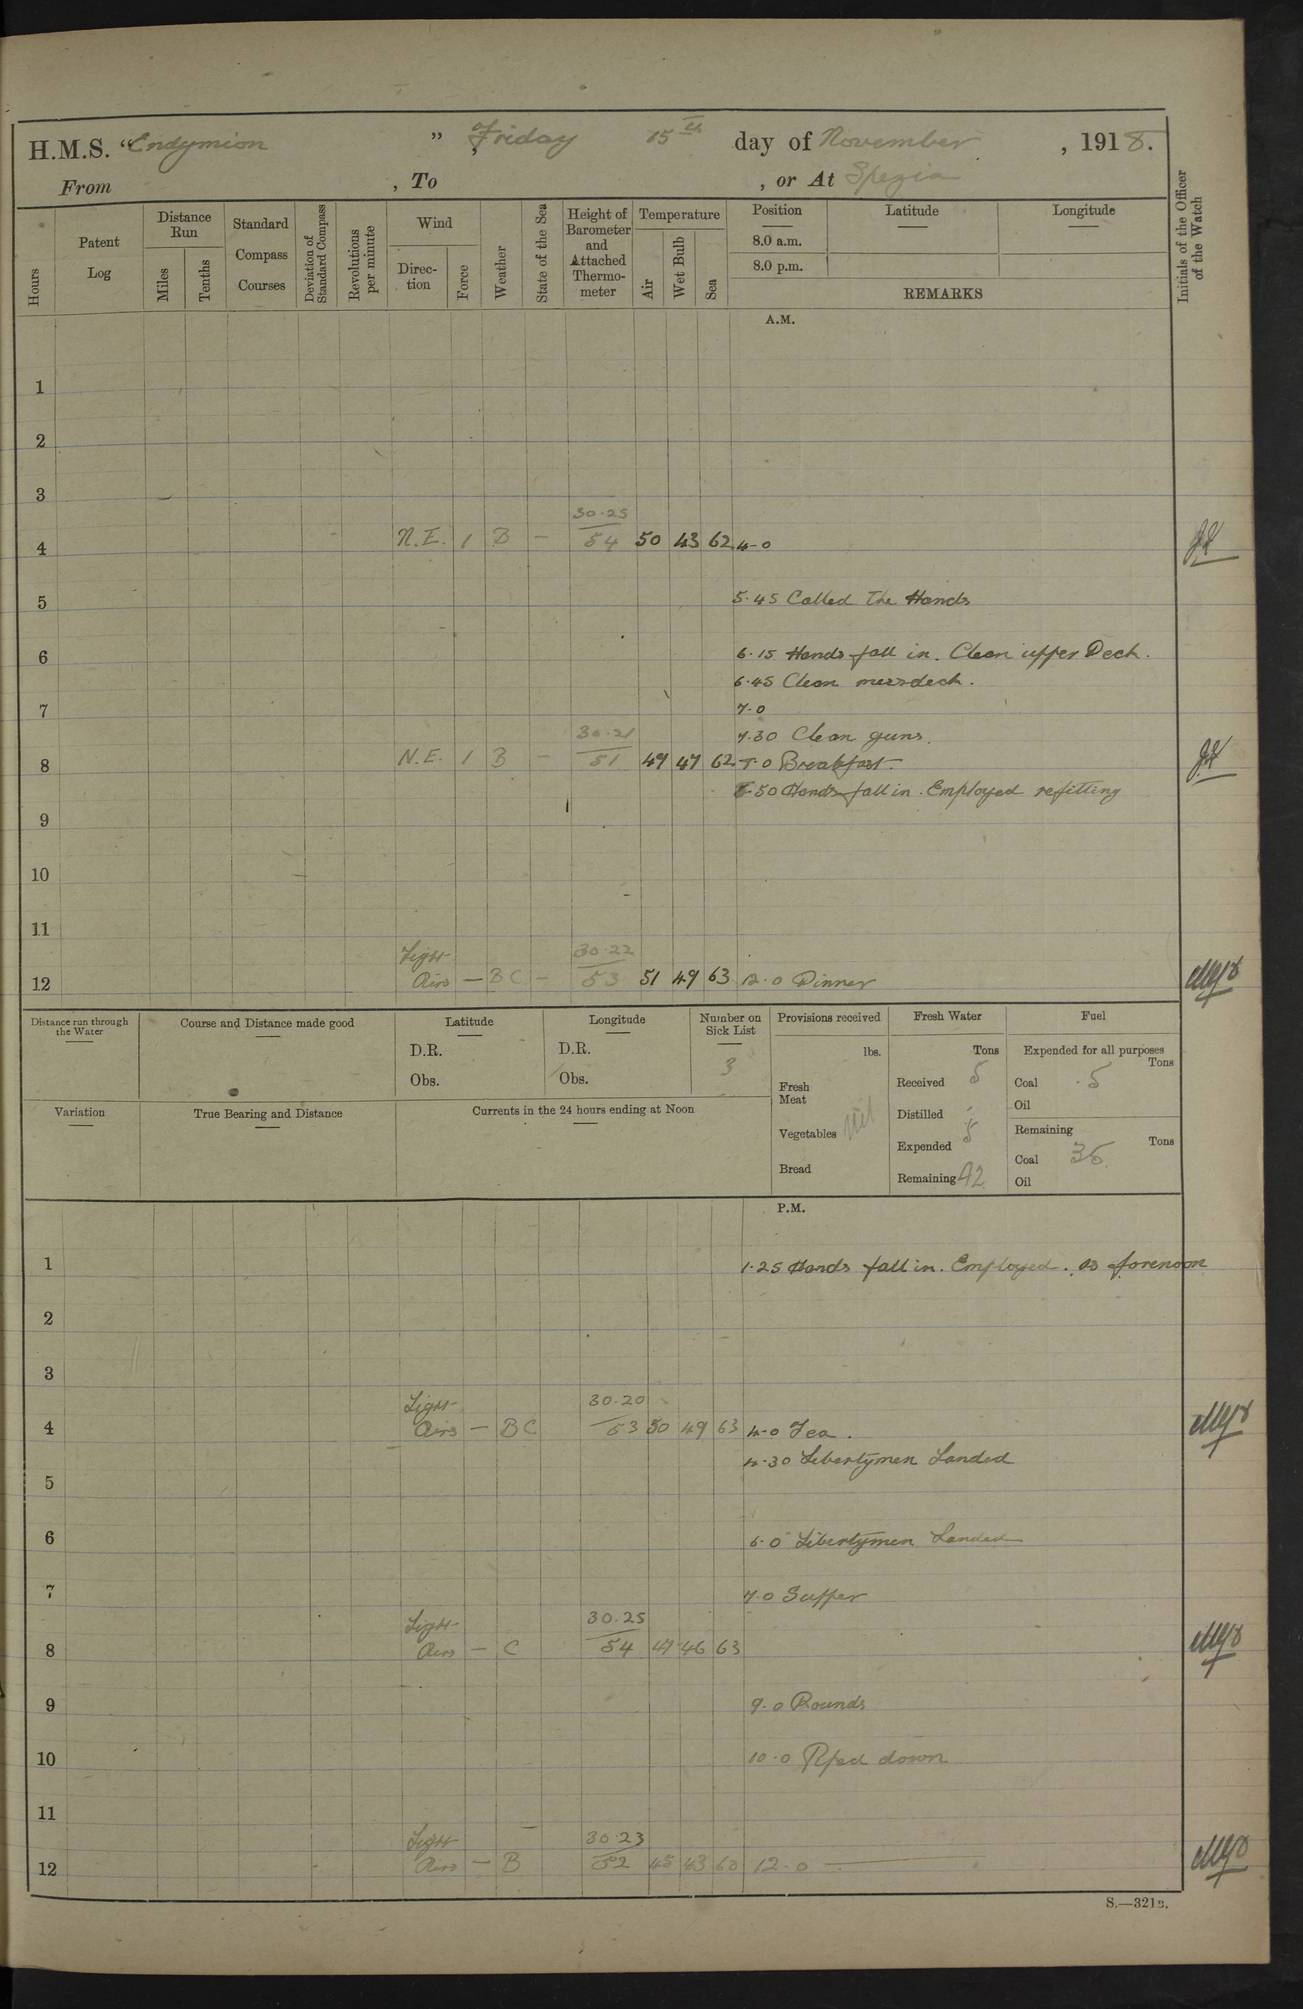 H.M.S. "Endymion", Friday 15th day of November, 1918.
From , To , or At Spezia
Hours Patent Log Distance Run Miles Tenths Standard Compass Courses Deviation of Standard Compass Revolutions per minute Wind Direction Force Weather State of the Sea Height of Barometer and Attached Thermometer Temperature Air Wet Bulb Sea Position 8.0 a.m. 8.0 p.m. Latitude Longitude REMARKS Initials of the Officer of the Watch
A.M.
1
2
3
30.25
4 N.E. 1 B - 54 50 43 62 4-0
5 5.45 Called The Hands
6 6.15 Hands fall in. Clean upper Deck.
6.45 Clean messdeck.
7 7-0
30.21 7.30 Clean guns.
8 N.E. 1 B - 51 49 47 62 8-0 Breakfast.
8-50 Hands fall in. Employed refitting
9
10
11
Light 30.22
12 Airs - BC - 53 51 49 63 12.0 Dinner
Distance run through the Water Course and Distance made good Latitude Longitude Number on Sick List Provisions received Fresh Water Fuel
D.R. D.R. 3 lbs. Tons Expended for all purposes Tons
Obs. Obs. Fresh Meat Received 5 Coal 5
Distilled - Oil
Variation True Bearing and Distance Currents in the 24 hours ending at Noon Vegetables Nil Expended Remaining Tons
Bread Remaining 42 Coal Oil
P.M.
1 1.25 Hands fall in. Employed. as forenoon
2
3
Light 30.20
4 Airs - BC 53 50 49 63 4-0 Tea.
4-30 Libertymen Landed
5
6 6.0 Libertymen Landed
7 7.0 Supper
Light 30.25
8 Airs - C 54 47 46 63
9 9.0 Rounds
10 10.0 Piped down
11
Light 30.23
12 Airs - B 52 45 43 60 12.0
S.—321B.